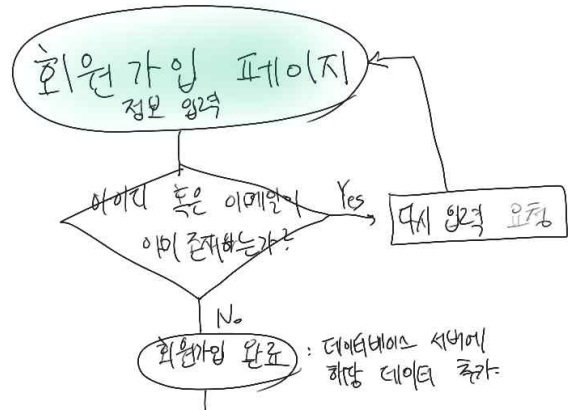 회원가입 페이지
정보 입력
아이디 혹은 이메일이
이미 존재하는가?
Yes
다시 입력 요청
No
회원가입 완료
: 데이터베이스 서버에
해당 데이터 추가.